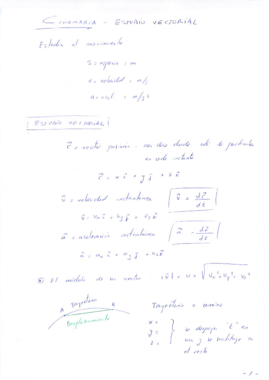 CINEMÁTICA - ESTUDIO VECTORIAL
Estudia el movimiento
S = espacio = m
v = velocidad = m/s
a = acel = m/s²
ESTUDIO VECTORIAL
r⃗ = vector posición - nos dice donde está la partícula
en cada instante
r⃗ = x i⃗ + y j⃗ + z k⃗
v⃗ = velocidad instantánea v⃗ = dr⃗/dt
v⃗ = vx i⃗ + vy j⃗ + vz k⃗
a⃗ = aceleración instantánea a⃗ = dv⃗/dt
a⃗ = ax i⃗ + ay j⃗ + az k⃗
El módulo de un vector |v⃗| = v = √vx² + vy² + vz²
Trayectoria
A B
Desplazamiento
Trayectoria = camino
x =
y =
z =
se despeja "t" en
una y se sustituye en
el resto
- 1 -